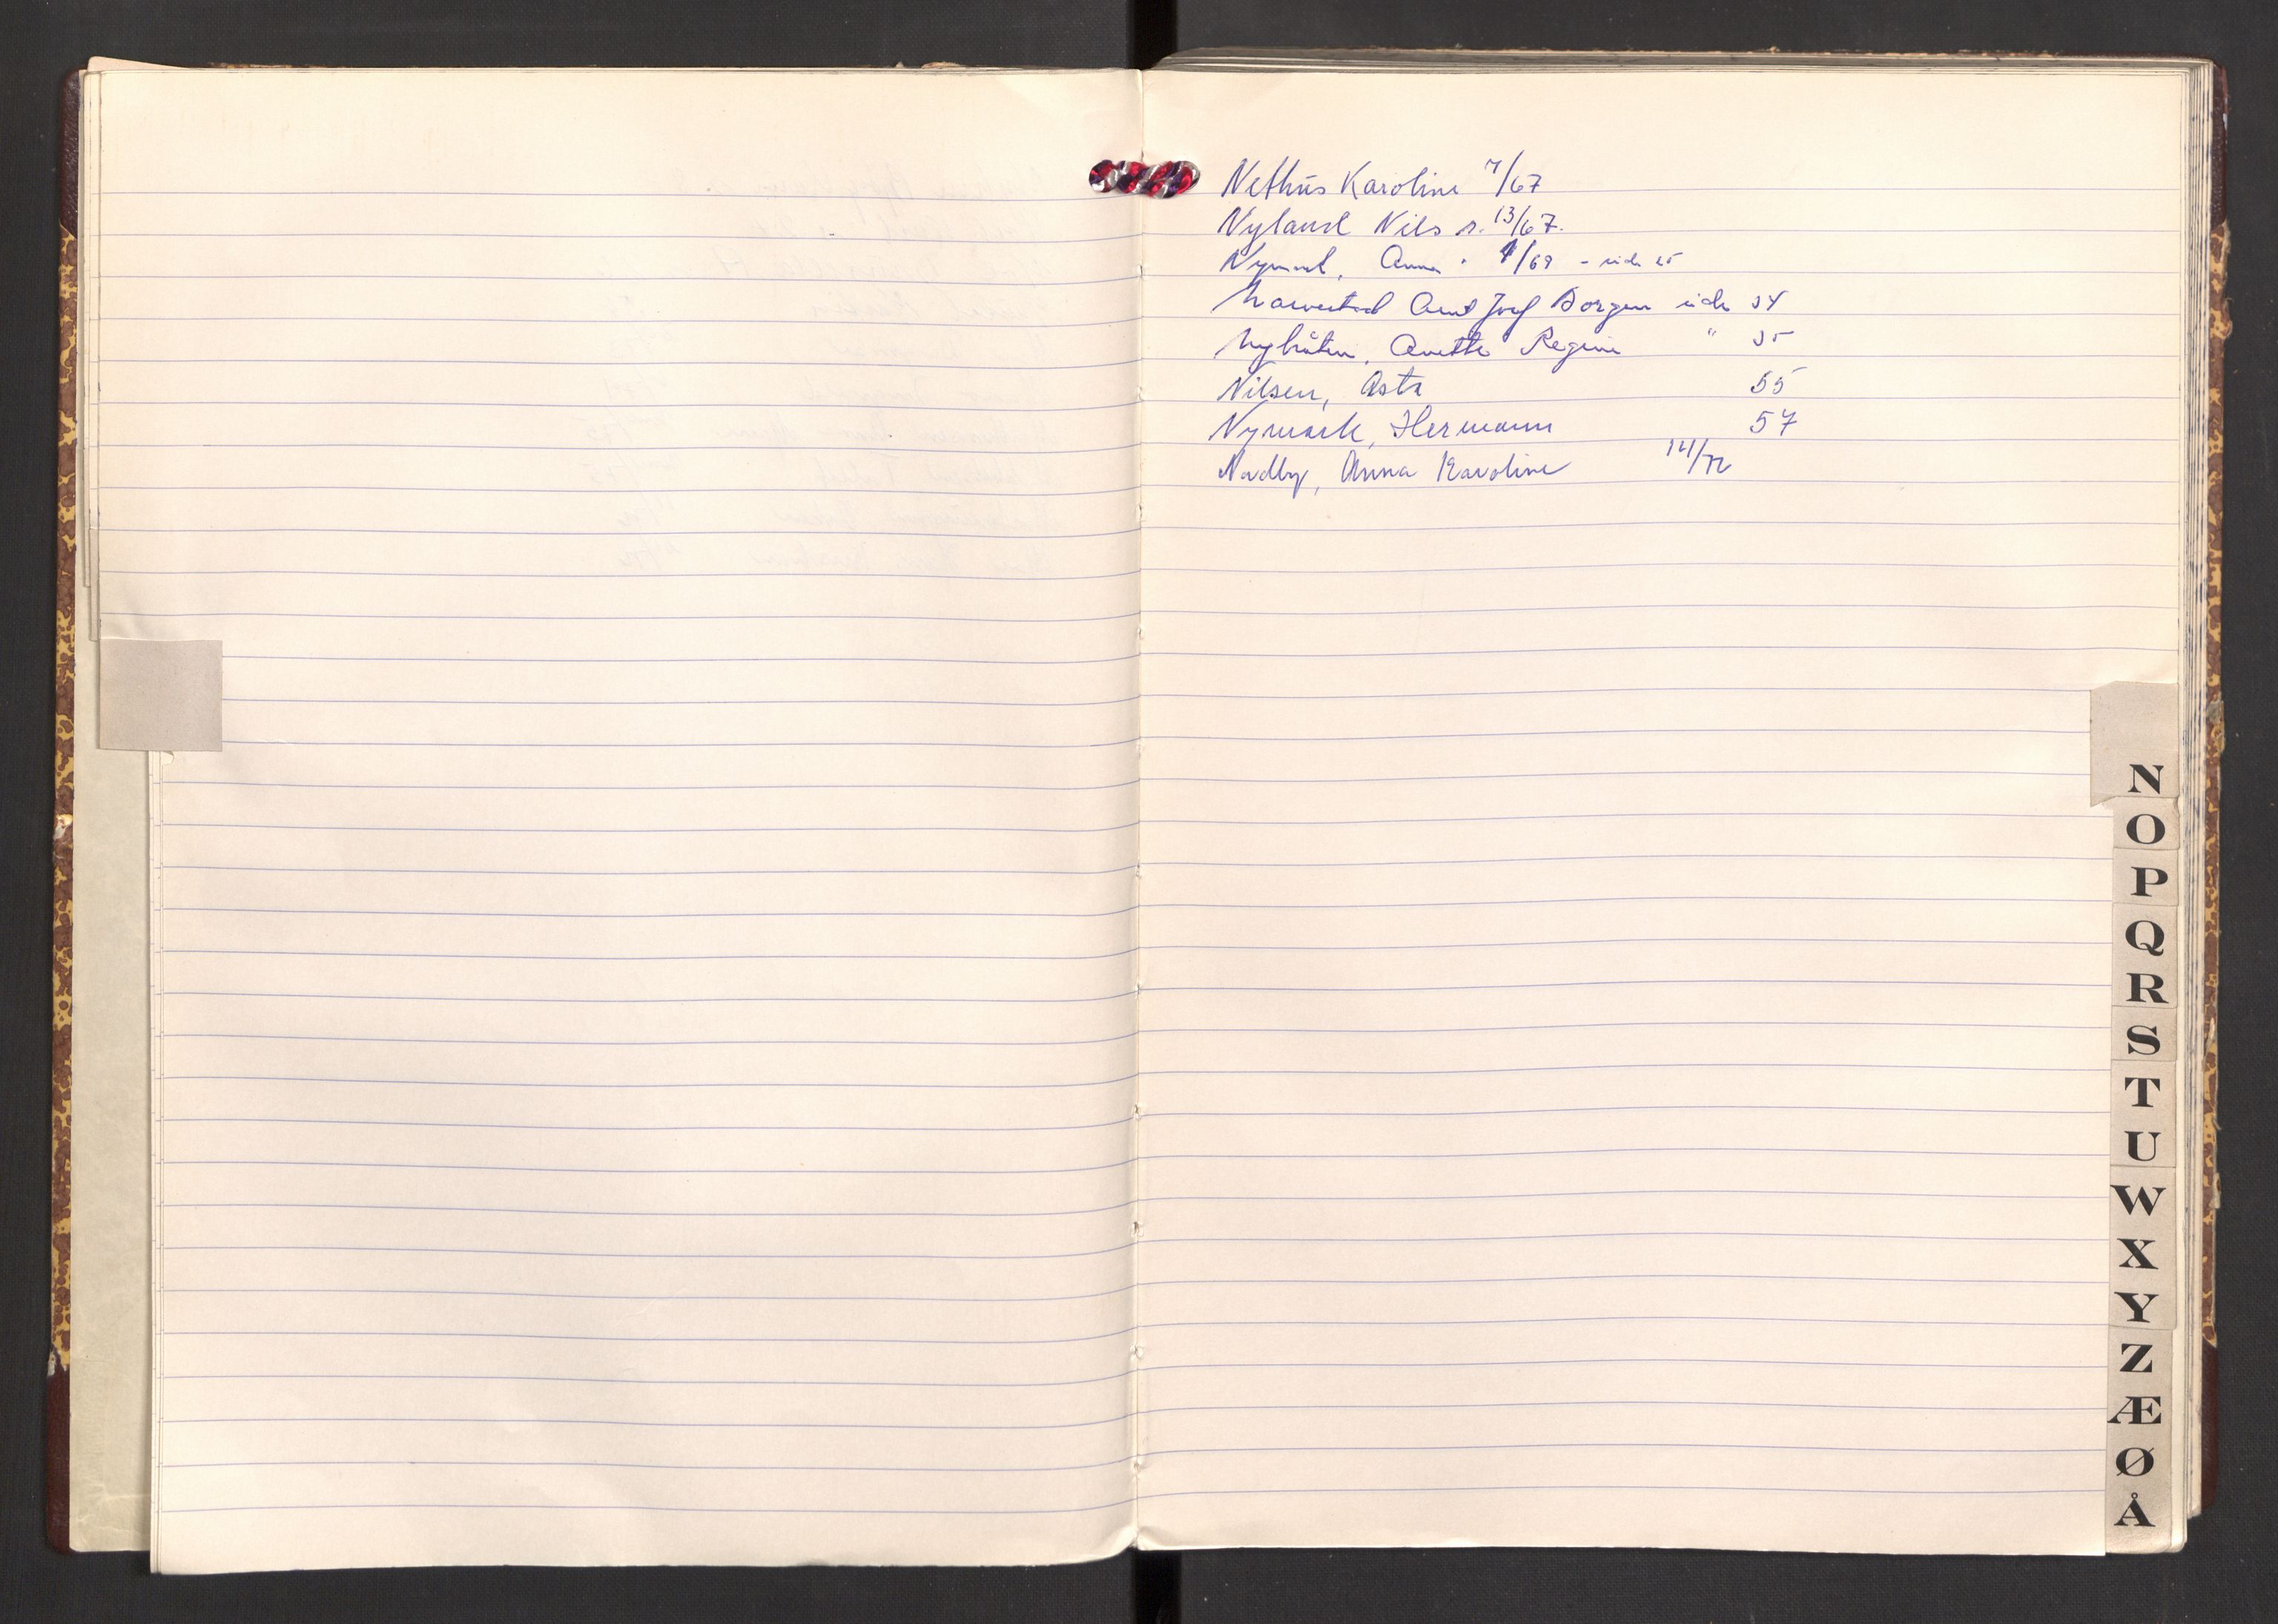 Nethus Karoline 7/67
Nyland Nils s. 13/67.
Nymark, Anna . 1/69 - side 25
Navestad Arnt Josef Borgen side 34
Nybråten, Anette Regine " 35
Nilsen, Asta 55
Nymark, Hermann 57
Nadby, Anna Karoline 14/72
N
O
P
Q
R
S
T
U
W
X
Y
Z
Æ
Ø
Å